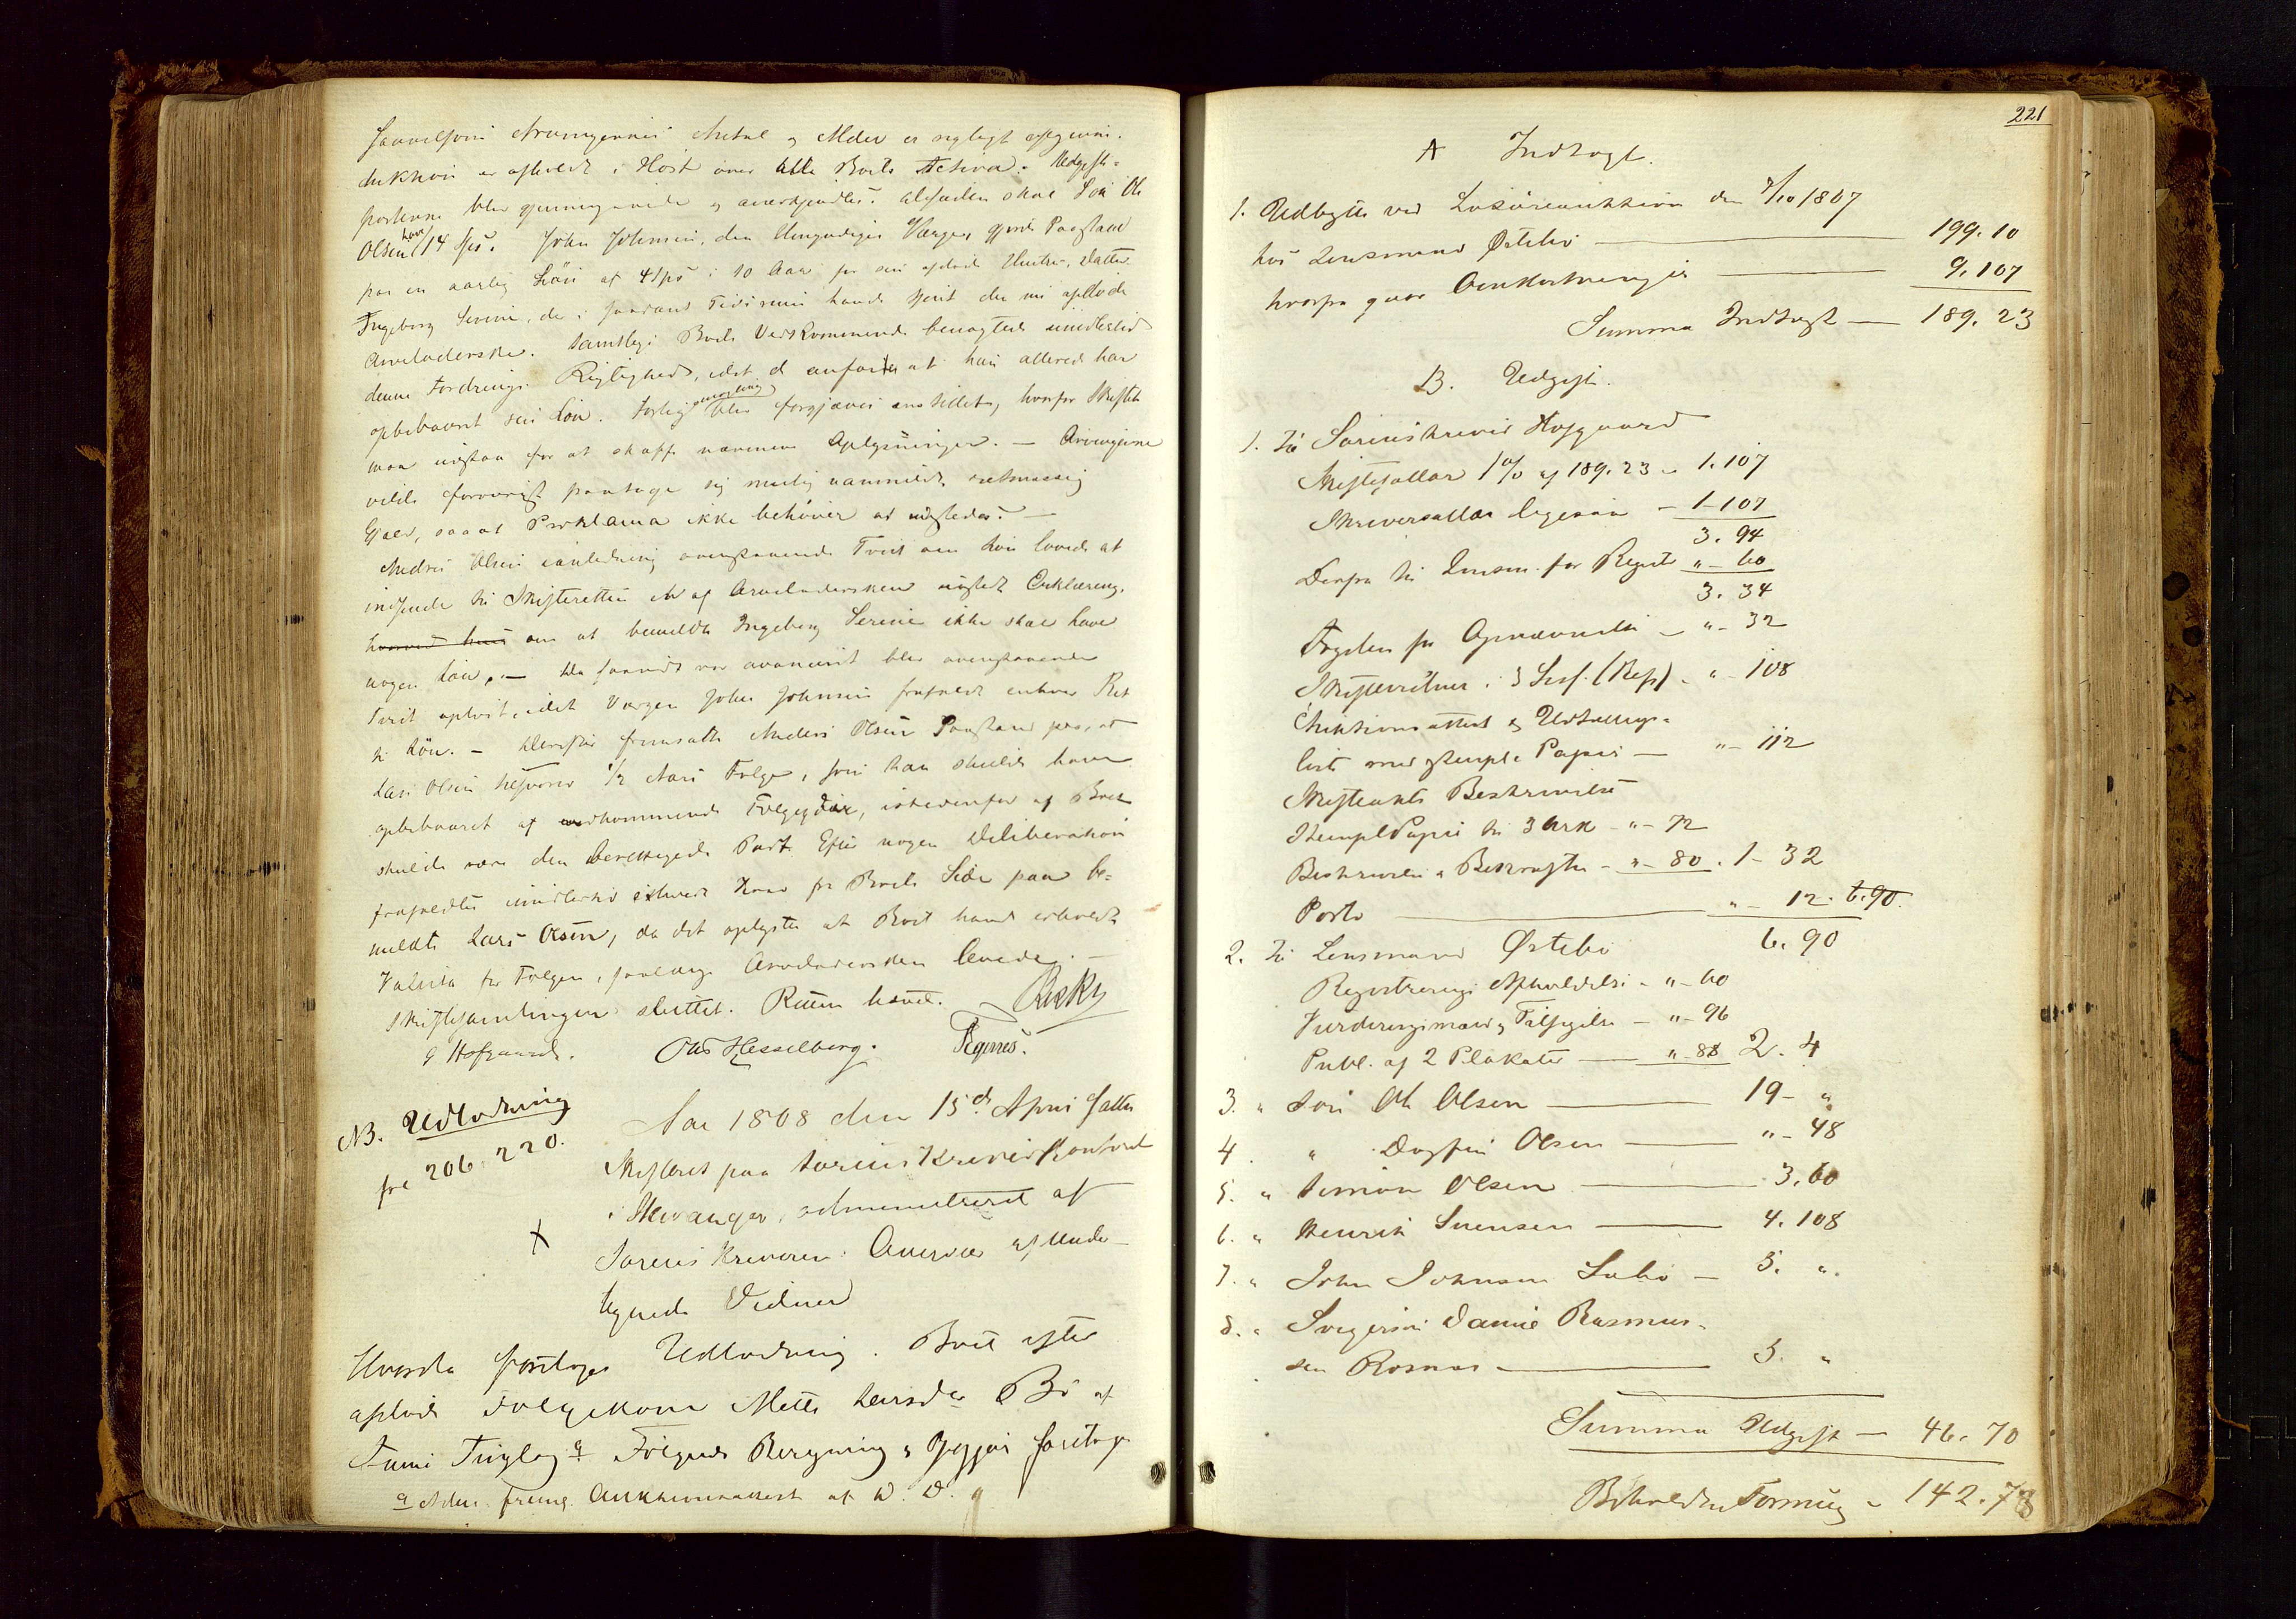 Arvingernes Antal og Alder er rigtigt opgivne.
Auktion er afholdt i Høst over alle Boets Activa. Udgifts-
posterne blev gjennemgaaede og anerkjendte.
Olsen have 14 Spd. John Johnsen, den Umyndiges Værge, gjorde Paastand
paa en aarlig Løn af 4 Spd i 10 Aar for sin afdøde Hustrus Datter
Ingeborg Serine, der i saadant Tidsrum havde tjent den nu afdøde
Arveladerske. Samtlige Boets Vedkommende benægtede imidlertid
denne Fordrings Rigtighed, idet de anførte at hun allerede har
oppebaaret sin Løn. Forlig blev forgjæves anstillet, hvorfor Skiftet
maa udstaa for at skaffe nærmere Oplysninger. – Arvingerne
vilde forøvrigt paatage sig mulig uanmeldt retmæssig
Gjæld, saa at Proklama ikke behøver at udstedes. –
Anders Olsen i anledning ovenstaaende Tvist om Løn lovede at
indsende til Skifteretten en af Arveladersken udstedt Erklæring,
om at bemeldte Ingeborg Serine ikke skal have
nogen Løn. – Da saavidt var avanceret blev ovenstaaende
Tvist ophævet, idet Værgen John Johnsen frafaldt enhver Ret
til Løn. – Derefter fremsatte Anders Olsen Paastand paa, at
Lars Olsen tilsvarer 1/2 Aars Følge, som han skulde have
oppebaaret af vedkommende Følgeyder, istedenfor af Boet
skulde være den berettigede Part. Efter nogen Deliberation
frafaldtes imidlertid ethvert Krav fra Boets Side paa be-
meldte Lars Olsen, da det oplystes at Boet havde erholdt
Valuta for Følgen, saalænge Arveladersken levede. –
Skiftesamlingen sluttet. Retten hævet.
G Hofgaard. Ths Hesselberg.
NB. Udlodning
fra 206. 220.
Aar 1868 den 15de April sattes
Skifteret paa Sorenskriverkontoret
i Stavanger, administreret af
Sorenskriveren. Overvær af under-
tegnede Vidner
Hvorda foretoges Udlodning i Boet efter
afdøde Følgekone Mette Larsdr Bø af
Tinglag a Følgende Beregning og Opgjør foretoges
a Adm. fremlg. Auktionsattest af D. D.
221
A Indtægt.
1. Udbytte ved Løsøreauktion den 3/10 1867
hos Lensmand Østebø — 199. 10
hvorfra gaar Omkostninger — 9. 107
Summa Indtægt — 189. 23
B. Udgift.
1. Til Sorenskriver Hofgaard
Skiftesallær 1 % af 189. 23 – 1. 107
Skriversallær ligesaa – 1 - 107
3. 94
Derfra til Lensm. for Registr " - 60
3. 34
Fogden for Opnævnelse – " - 32
Skiftevidner i 3 Ses. (Rep) – " - 108
Auktionsattest og Udtællings-
liste med stempl. Papir — " - 112
Skifteakts Beskrivelse
Stempl. Papir til 3 Ark – " - 72
Beskrivelse & Bekræftn – " - 80 . 1 - 32
Porto — " - 12. 6.90.
6. 90
2. Til Lensmand Østebø
Registrerings Afholdelse – " - 60
Vurderingsmænds Tilsigelse – " - 96
Publ. af 2 Plakater — " - 88 2. 4
3. " Lars Ols Olsen — 19 - "
4. " Dagfin Olsen — " - 48
5. " Simon Olsen — 3. 60
6. " Henrik Svensen — 4. 108
7. " John Johnsen — 5. "
8. " Svigersøn Daniel Rasmus-
sen Rosnes — 5. "
Summa Udgift — 46. 70
Beholden Formue – 142. 73